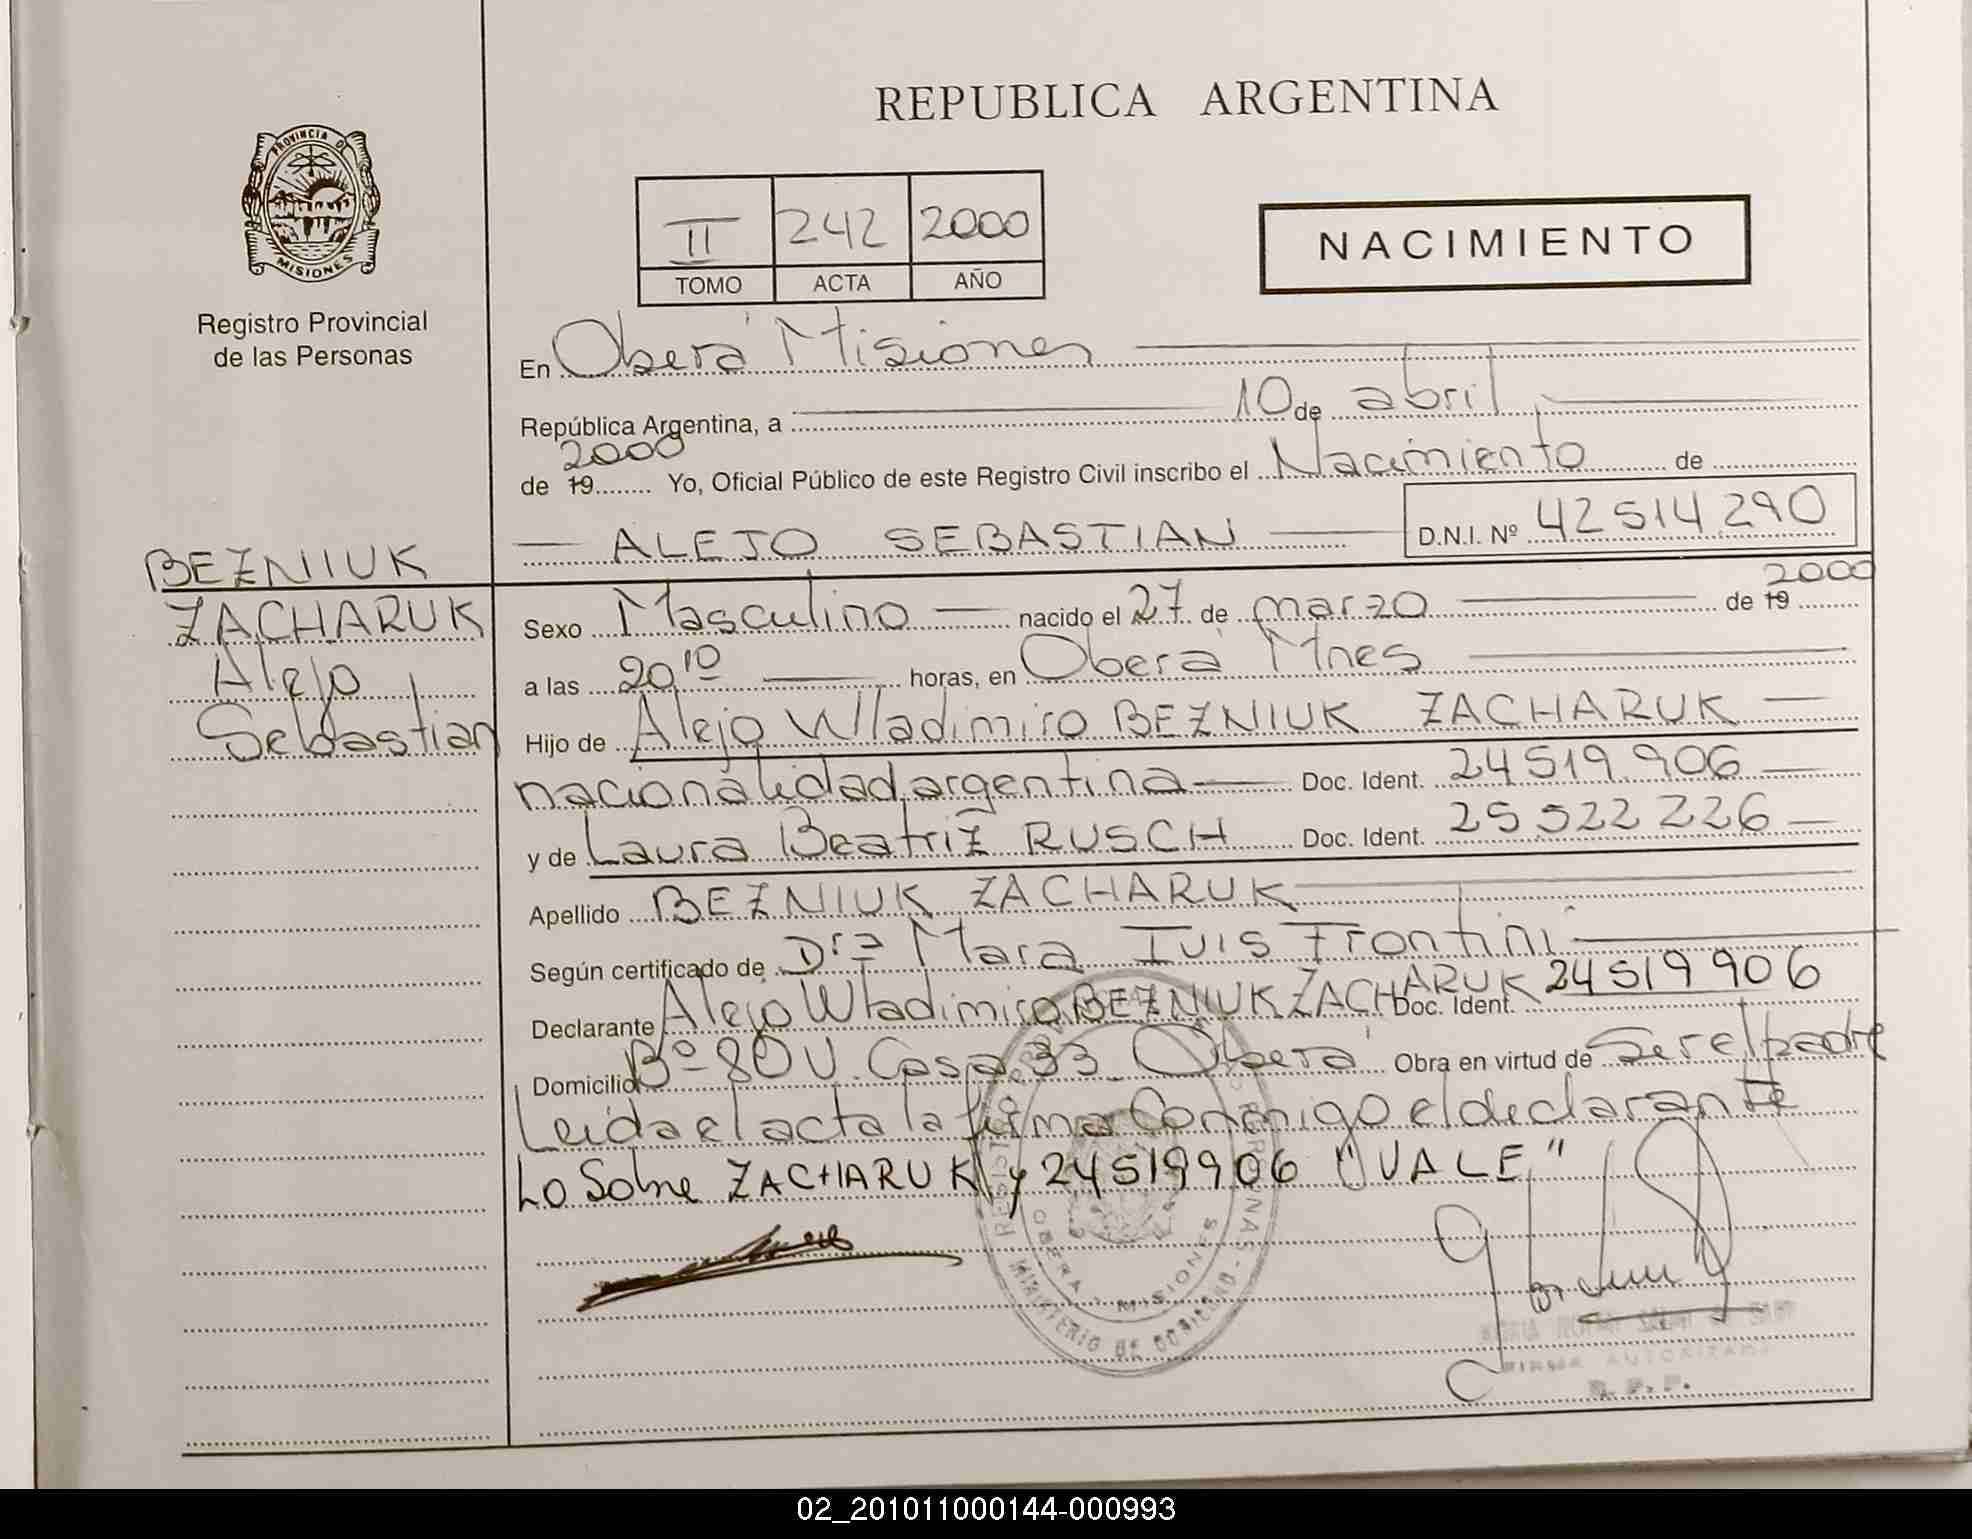 REPUBLICA ARGENTINA
PROVINCIA DE
MISIONES
Registro Provincial
de las Personas
II 242 2000
TOMO ACTA AÑO
NACIMIENTO
En Oberá Misiones
República Argentina, a 10 de abril
de 19 2000 Yo, Oficial Público de este Registro Civil inscribo el Nacimiento de
ALEJO SEBASTIAN D.N.I. Nº 42514290
BEZNIUK
ZACHARUK
Alejo
Sebastian
Sexo Masculino nacido el 27 de marzo de 19 2000
a las 20,10 horas, en Oberá Mnes
Hijo de Alejo Wladimiro BEZNIUK ZACHARUK
nacionalidad argentina Doc. Ident. 24519906
y de Laura Beatriz RUSCH Doc. Ident. 25522226
Apellido BEZNIUK ZACHARUK
Según certificado de Dra Mara Ivis Frontini
Declarante Alejo Wladimiro BEZNIUK ZACHARUK Doc. Ident. 24519906
Domicilio Bº 80 V. Casa 33 Oberá Obra en virtud de Ser el padre
Leida el acta la firma Conmigo el declarante
Lo Sobre ZACHARUK y 24519906 "VALE"
OBERA - MISIONES
MINISTERIO DE GOBIERNO
FIRMA AUTORIZADA
R. P. P.
02_201011000144-000993